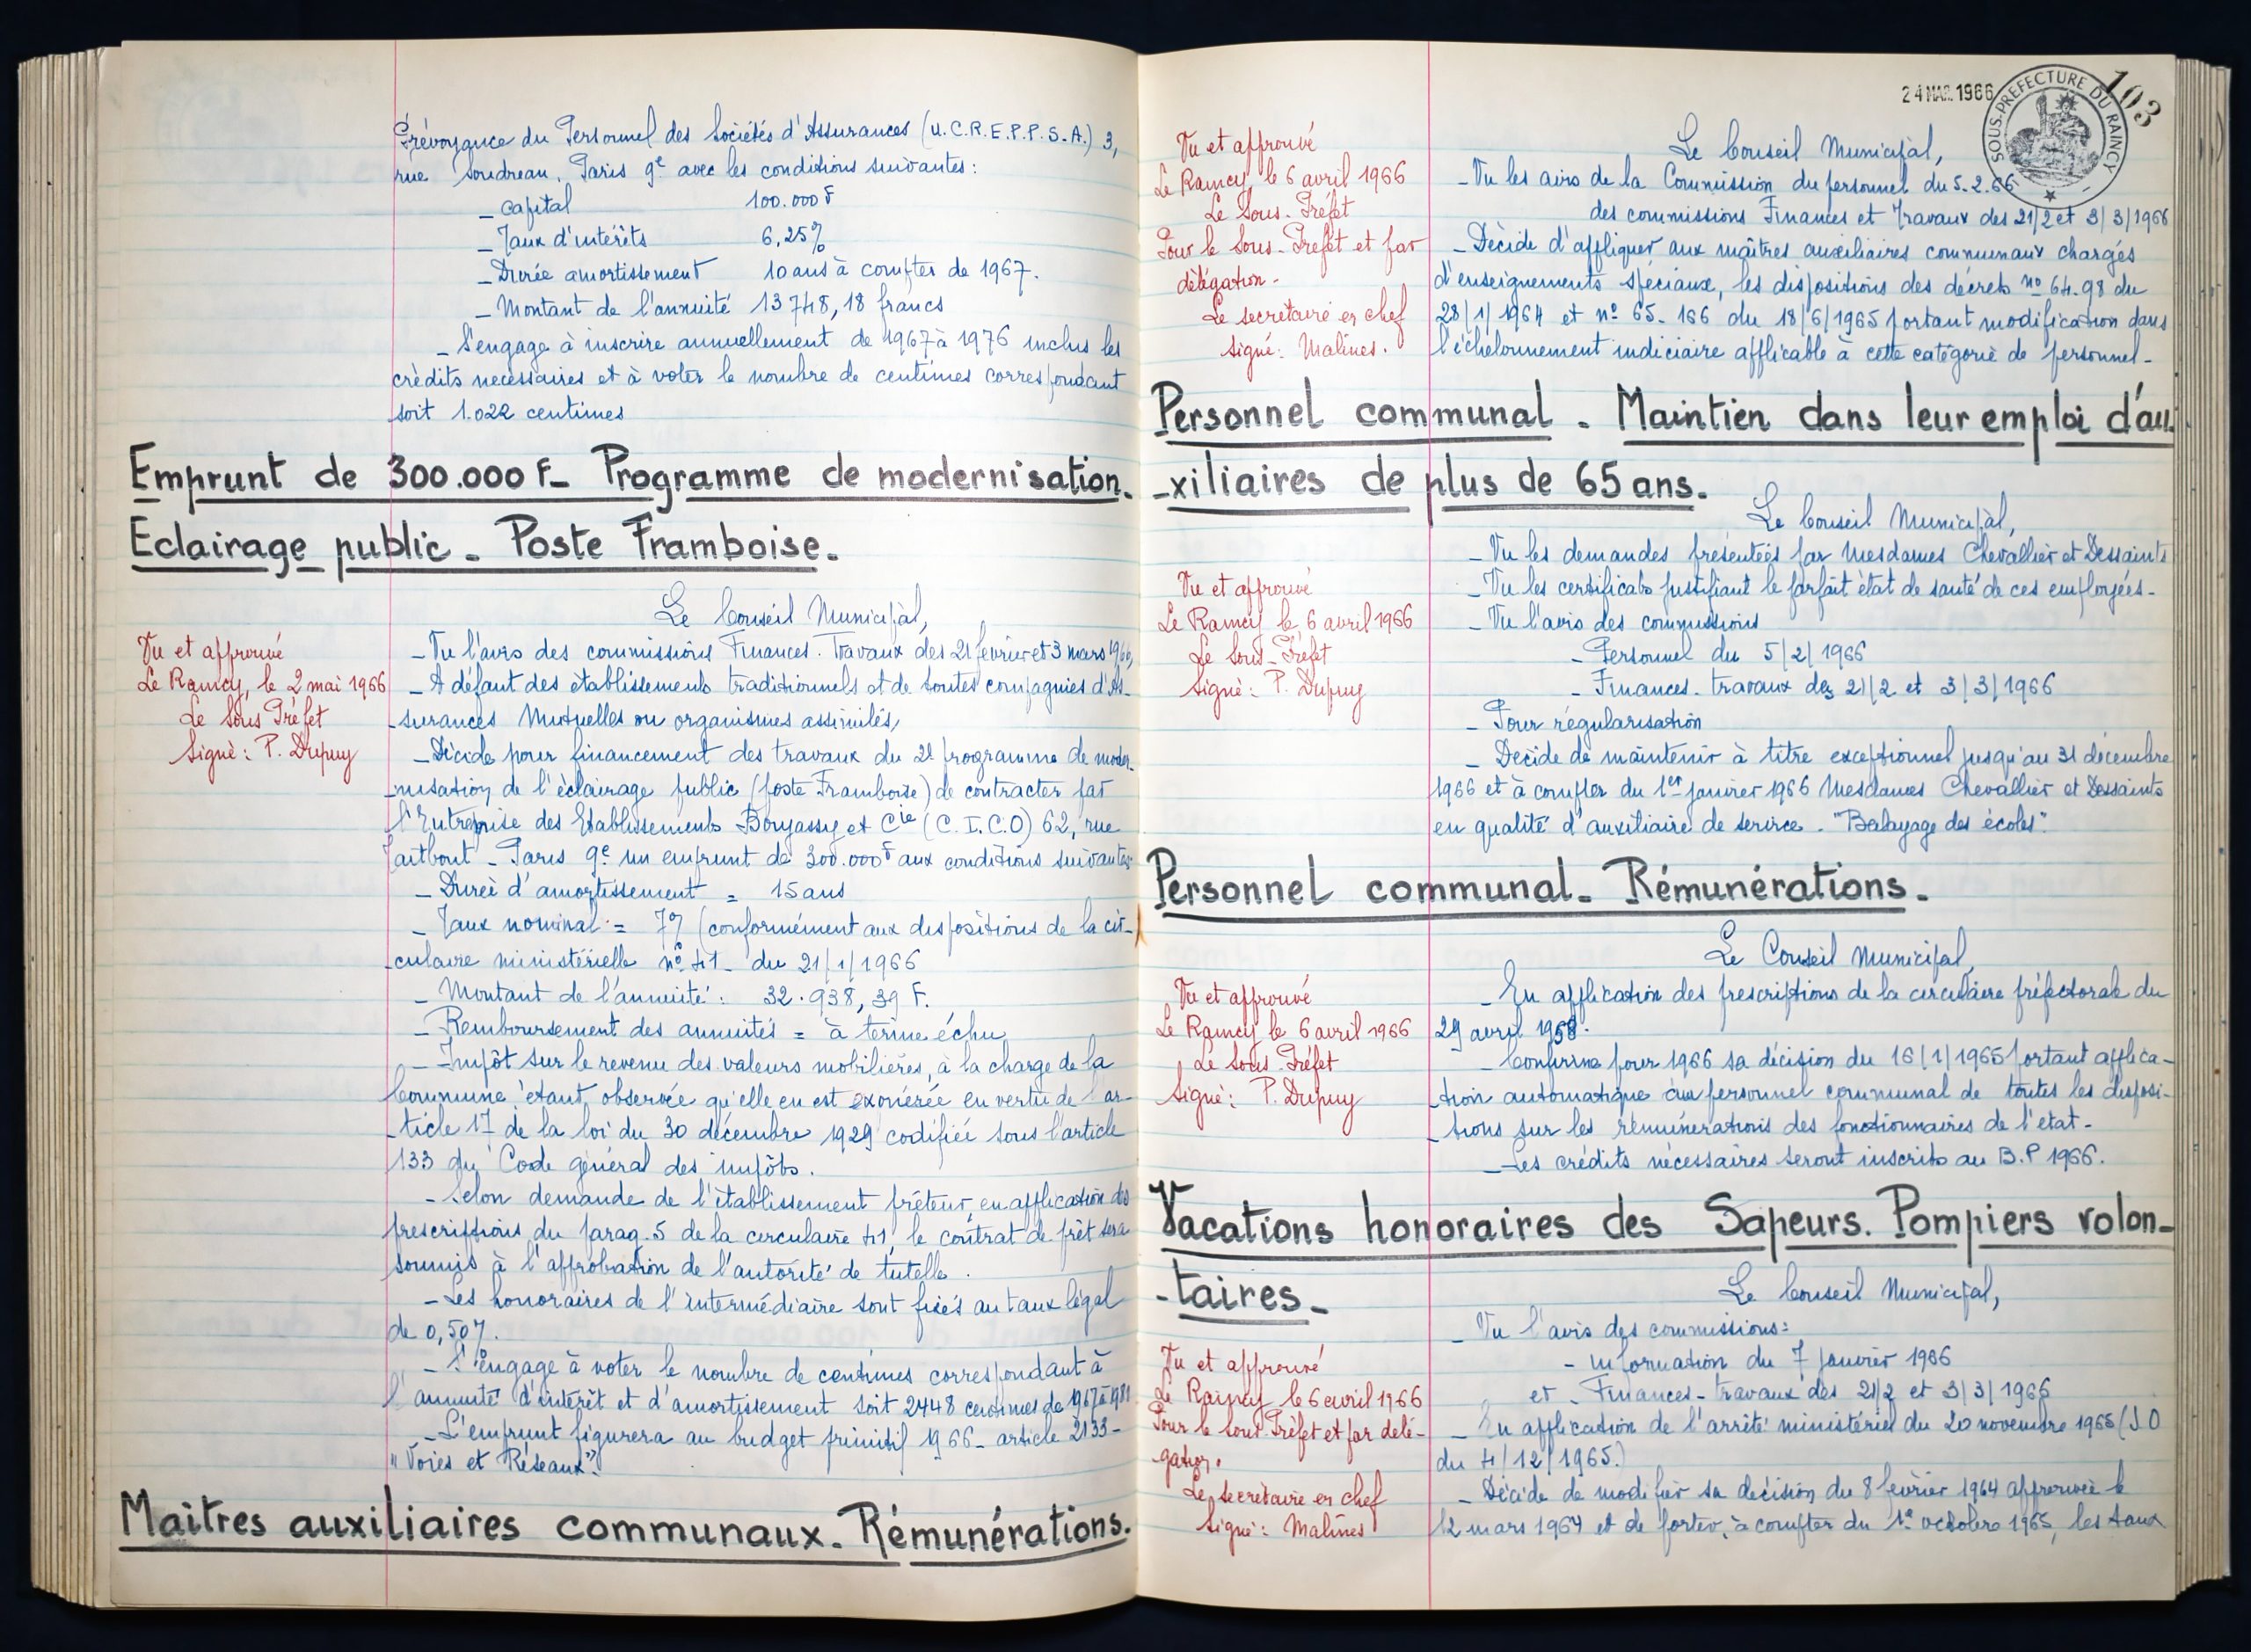 Prévoyance du Personnel des Sociétés d'Assurances (U.C.R.E.P.P.S.A.) 3,
rue Soudreau. Paris 9e avec les conditions suivantes:
_ Capital 100.000 F
_ Taux d'intérêts 6,25%
_ Durée amortissement 10 ans à compter de 1967.
_ Montant de l'annuité 13 748,18 francs
_ S'engage à inscrire annuellement de 1967 à 1976 inclus les
crédits necéssaires et à voter le nombre de centimes correspondant
soit 1.022 centimes
Emprunt de 300.000 F_ Programme de modernisation.
Eclairage public_ Poste Framboise.
Le Conseil Municipal,
Vu et approuvé
Le Raincy, le 2 mai 1966
Le Sous Préfet
Signé: P. Dupuy
_ Vu l'avis des commissions Finances. Travaux des 21 février et 3 mars 1966,
_ A défaut des établissements traditionnels et de toutes compagnies d'As-
-surances Mutuelles ou organismes assimilés,
_ Décide pour financement des travaux du 2e programme de moder-
-nisation de l'éclairage public (poste Framboise) de contracter par
l'Entreprise des Etablissements Boyassy et Cie (C.I.C.O) 62, rue
Taitbout _ Paris 9e un emprunt de 300.000 F aux conditions suivantes
_ Durée d'amortissement = 15 ans
_ Taux nominal = 7% (conformément aux dispositions de la cir-
-culaire ministérielle n° 41_ du 21/1/1966
_ Montant de l'annuité: 32.938,39 F.
_ Remboursement des annuités = à terme échu
_ Impôt sur le revenu des valeurs mobilières, à la charge de la
Commune étant observée qu'elle en est exonérée en vertu de l'ar-
-ticle 17 de la loi du 30 décembre 1929 codifiée sous l'article
133 du Code général des impôts.
_ Selon demande de l'établissement prêteur, en application des
prescriptions du parag. 5 de la circulaire 41, le contrat de prêt sera
soumis à l'approbation de l'autorité de tutelle.
_ Les honoraires de l'intermédiaire sont fixés au taux légal
de 0,50%.
_ S'engage à voter le nombre de centimes correspondant à
l'annuité d'intérêt et d'amortissement soit 2448 centimes de 1967 à 1981
_ L'emprunt figurera au budget primitif 1966_ article 2133_
"Voies et Réseaux".
Maîtres auxiliaires communaux_ Rémunérations.
24 MAR. 1966
SOUS-PREFECTURE DU RAINCY
103
Vu et approuvé
Le Raincy, le 6 avril 1966
Le Sous-Préfet
Pour le Sous-Préfet et par
délégation-
Le secrétaire en chef
Signé: Malines.
Le Conseil Municipal,
_ Vu les avis de la Commission du personnel du 5.2.66
des commissions Finances et Travaux des 21/2 et 3/3/1966
_ Décide d'appliquer aux maîtres auxiliaires communaux chargés
d'enseignements spéciaux, les dispositions des décrets n° 64.98 du
28/1/1964 et n° 65-166 du 18/6/1965 portant modification dans
l'échelonnement indiciaire applicable à cette catégorie de personnel_
Personnel communal_ Maintien dans leur emploi d'au
-xiliaires de plus de 65 ans.
Le Conseil Municipal,
Vu et approuvé
Le Raincy le 6 avril 1966
Le Sous-Préfet
Signé: P. Dupuy
_ Vu les demandes présentées par Mesdames Chevallier et Dessaints
_ Vu les certificats justifiant le parfait état de santé de ces employées_
_ Vu l'avis des commissions
_ Personnel du 5/2/1966
_ Finances. travaux des 21/2 et 3/3/1966
_ Pour régularisation
_ Décide de maintenir à titre exceptionnel jusqu'au 31 décembre
1966 et à compter du 1er janvier 1966 Mesdames Chevallier et Dessaints
en qualité d'auxiliaire de service. "Balayage des écoles".
Personnel communal_ Rémunérations_
Le Conseil Municipal
Vu et approuvé
Le Raincy le 6 avril 1966
Le Sous-Préfet
Signé: P. Dupuy
_ En application des prescriptions de la circulaire préfectorale du
29 avril 1958.
_ Confirme pour 1966 sa décision du 16/1/1965 portant applica-
-tion automatique au personnel communal de toutes les disposi-
-tions sur les rémunérations des fonctionnaires de l'état_
_ Les crédits nécessaires seront inscrits au B.P 1966.
Vacations honoraires des Sapeurs. Pompiers volon-
-taires_
Le Conseil Municipal,
Vu et approuvé
Le Raincy le 6 avril 1966
Pour le Sous Préfet et par délé-
gation.
Le secrétaire en chef
Signé: Malines
_ Vu l'avis des commissions:
_ information du 7 janvier 1966
et _ Finances_ travaux des 21/2 et 3/3/1966
_ En application de l'arrêté ministériel du 20 novembre 1965 (J.O
du 4/12/1965.)
_ Décide de modifier sa décision du 8 février 1964 approuvée le
12 mars 1964 et de porter, à compter du 1er octobre 1965, les taux